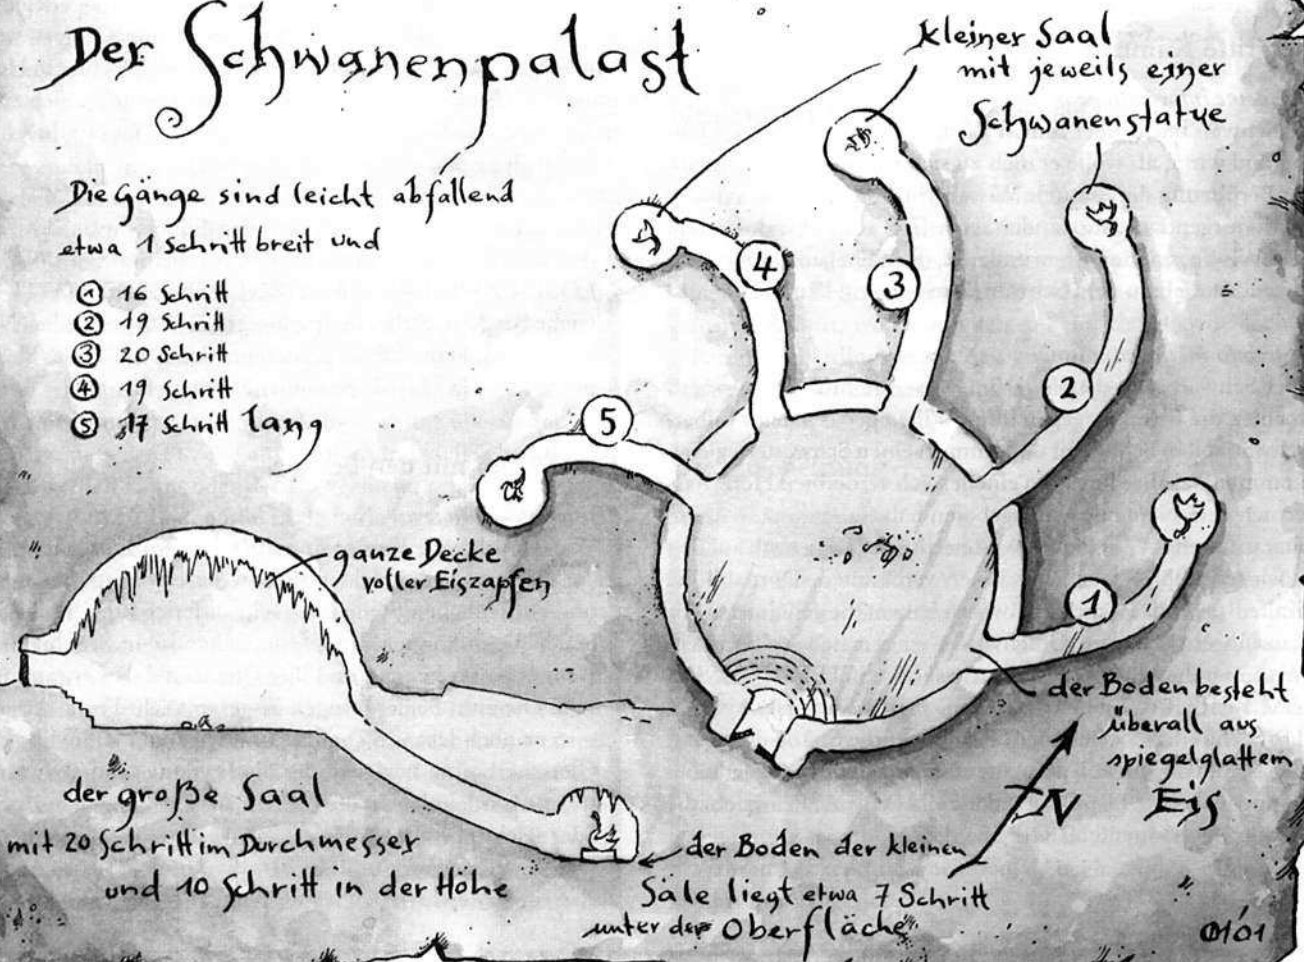 Der Schwanenpalast
kleiner Saal
mit jeweils einer
Schwanenstatue
Die Gänge sind leicht abfallend
etwa 1 Schritt breit und
1 16 Schritt
2 19 Schritt
3 20 Schritt
4 19 Schritt
5 17 Schritt lang
4
3
2
5
1
ganze Decke
voller Eiszapfen
der Boden besteht
überall aus
spiegelglattem
Eis
N
der große Saal
mit 20 Schritt im Durchmesser
und 10 Schritt in der Höhe
der Boden der kleinen
Säle liegt etwa 7 Schritt
unter der Oberfläche
01'01